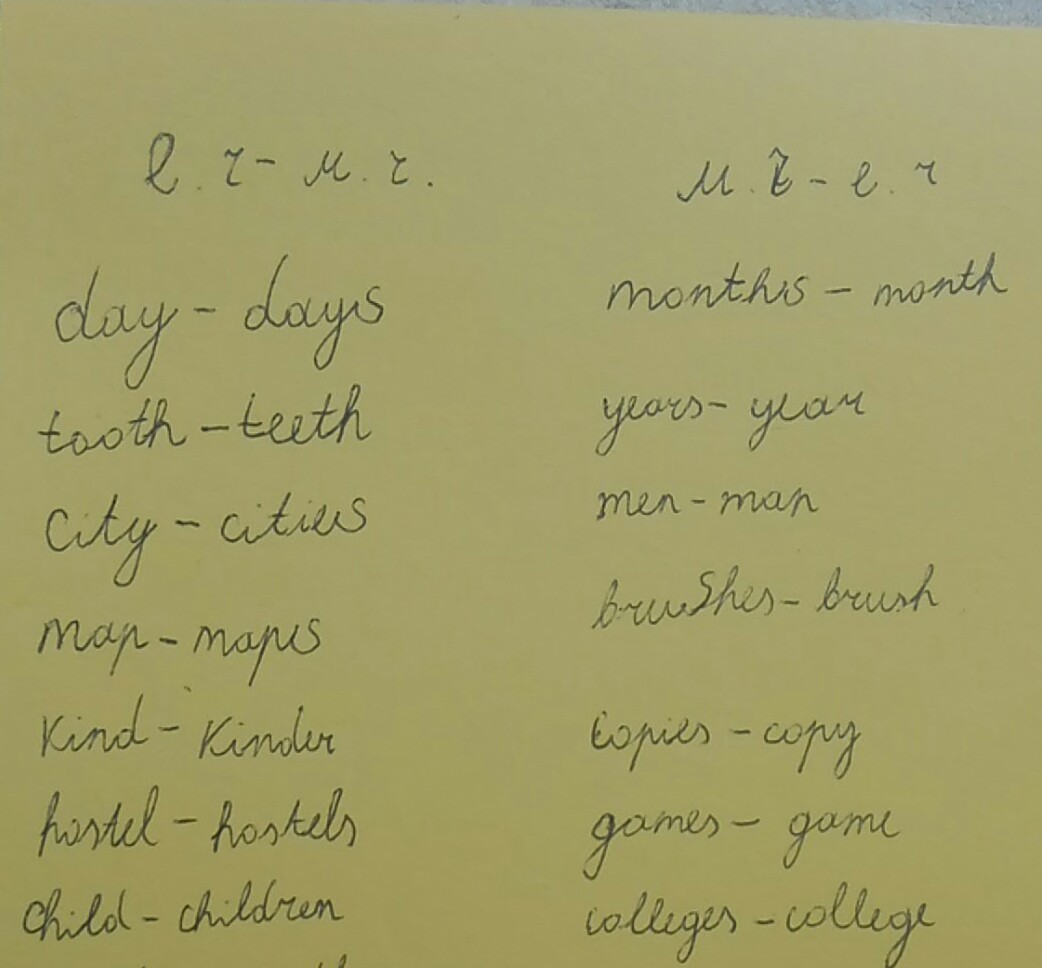 е. ч - м. ч.
day - days
tooth - teeth
City - cities
map - maps
Kind - Kinder
hostel - hostels
Child - children
м. ч - е. ч
months - month
years - year
men - man
bruShes - brush
Copies - copy
games - game
colleges - college